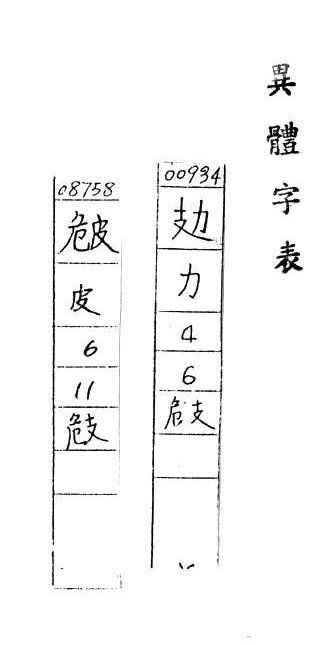 異體字表
00934
攰
力
4
6
㩻
08758
皮
6
11
㩻